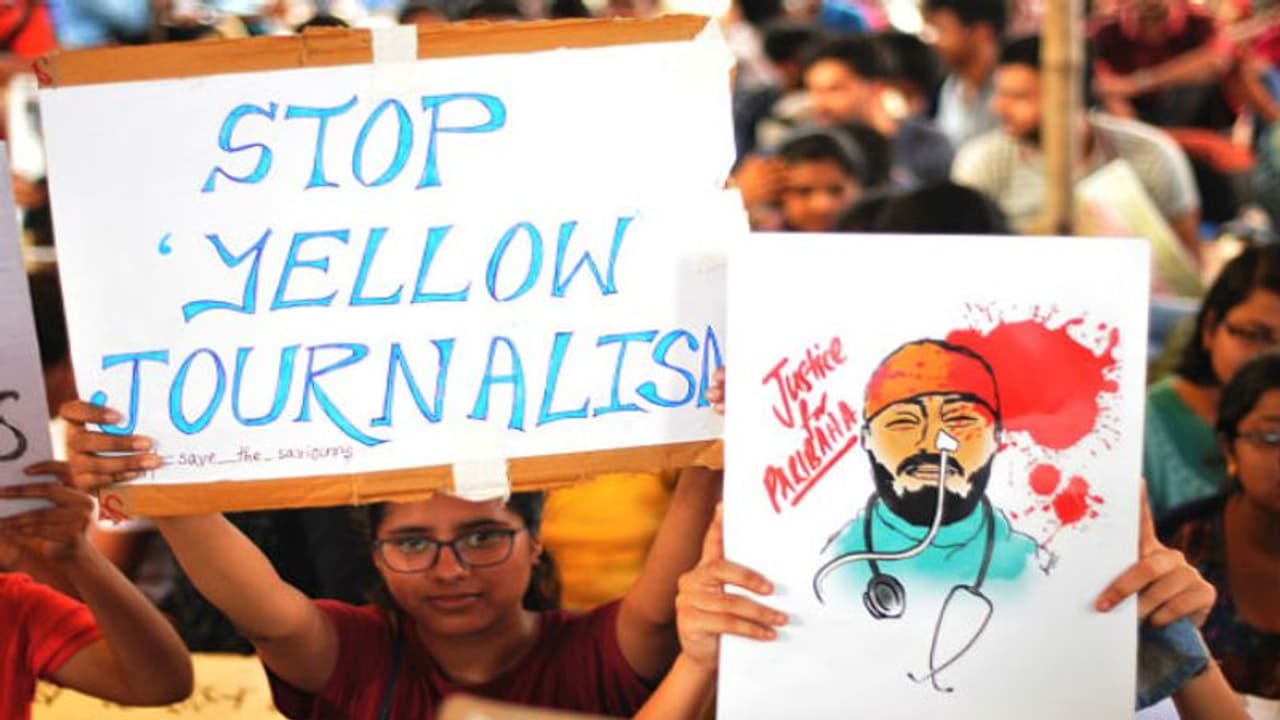 STOP
‘YELLOW
JOURNALISM
save_the_saviours
Justice
for
PARIBAHA
S